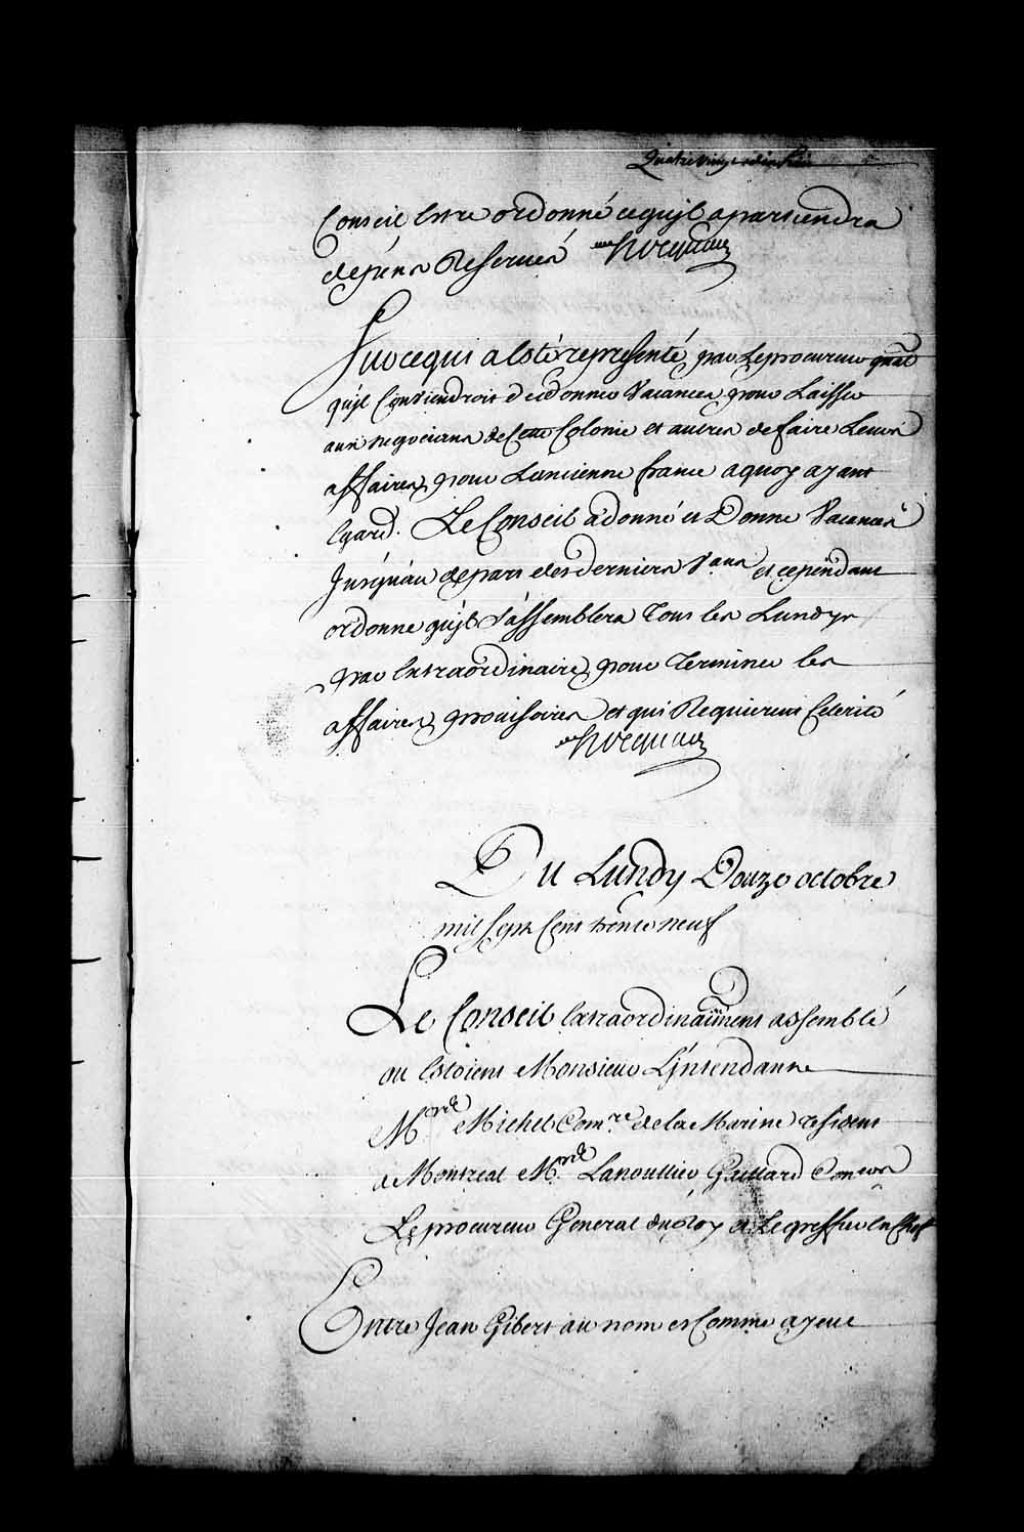 Quatre vingt
Conseil Estre ordonné cequ'jl apartiendra
dépens Reservés Hocquart
Sur cequi a Esté representé par Leprocureur gnal
qu'jl Conviendroit de donner Vacances pour Laisser
aux negocians de Cette Colonie et autres de faire Leurs
affaires pour Lancienne france aquoy ayant
Egard. Le Conseil a donné et Donne Vacances
Jusqu'au depart des derniers Vaux et cependant
ordonne qu'jl s'assemblera Tous les Lundys
par Extraordinaire pour Terminer les
affaires provisoires et qui Requierent Celerité
Hocquart
Du Lundy Douze octobre
mil Sept Cent trente neuf
Le Conseil Extraordinairement assemblé
ou Estoient Monsieur L'jntendant
Mre Michel Comre de la Marine resident
a Montreal Mres Lanoullier Guillard Coners
Le procureur General du Roy et Le greffier En Chef
Entre Jean Gibert au nom et Comme ayant